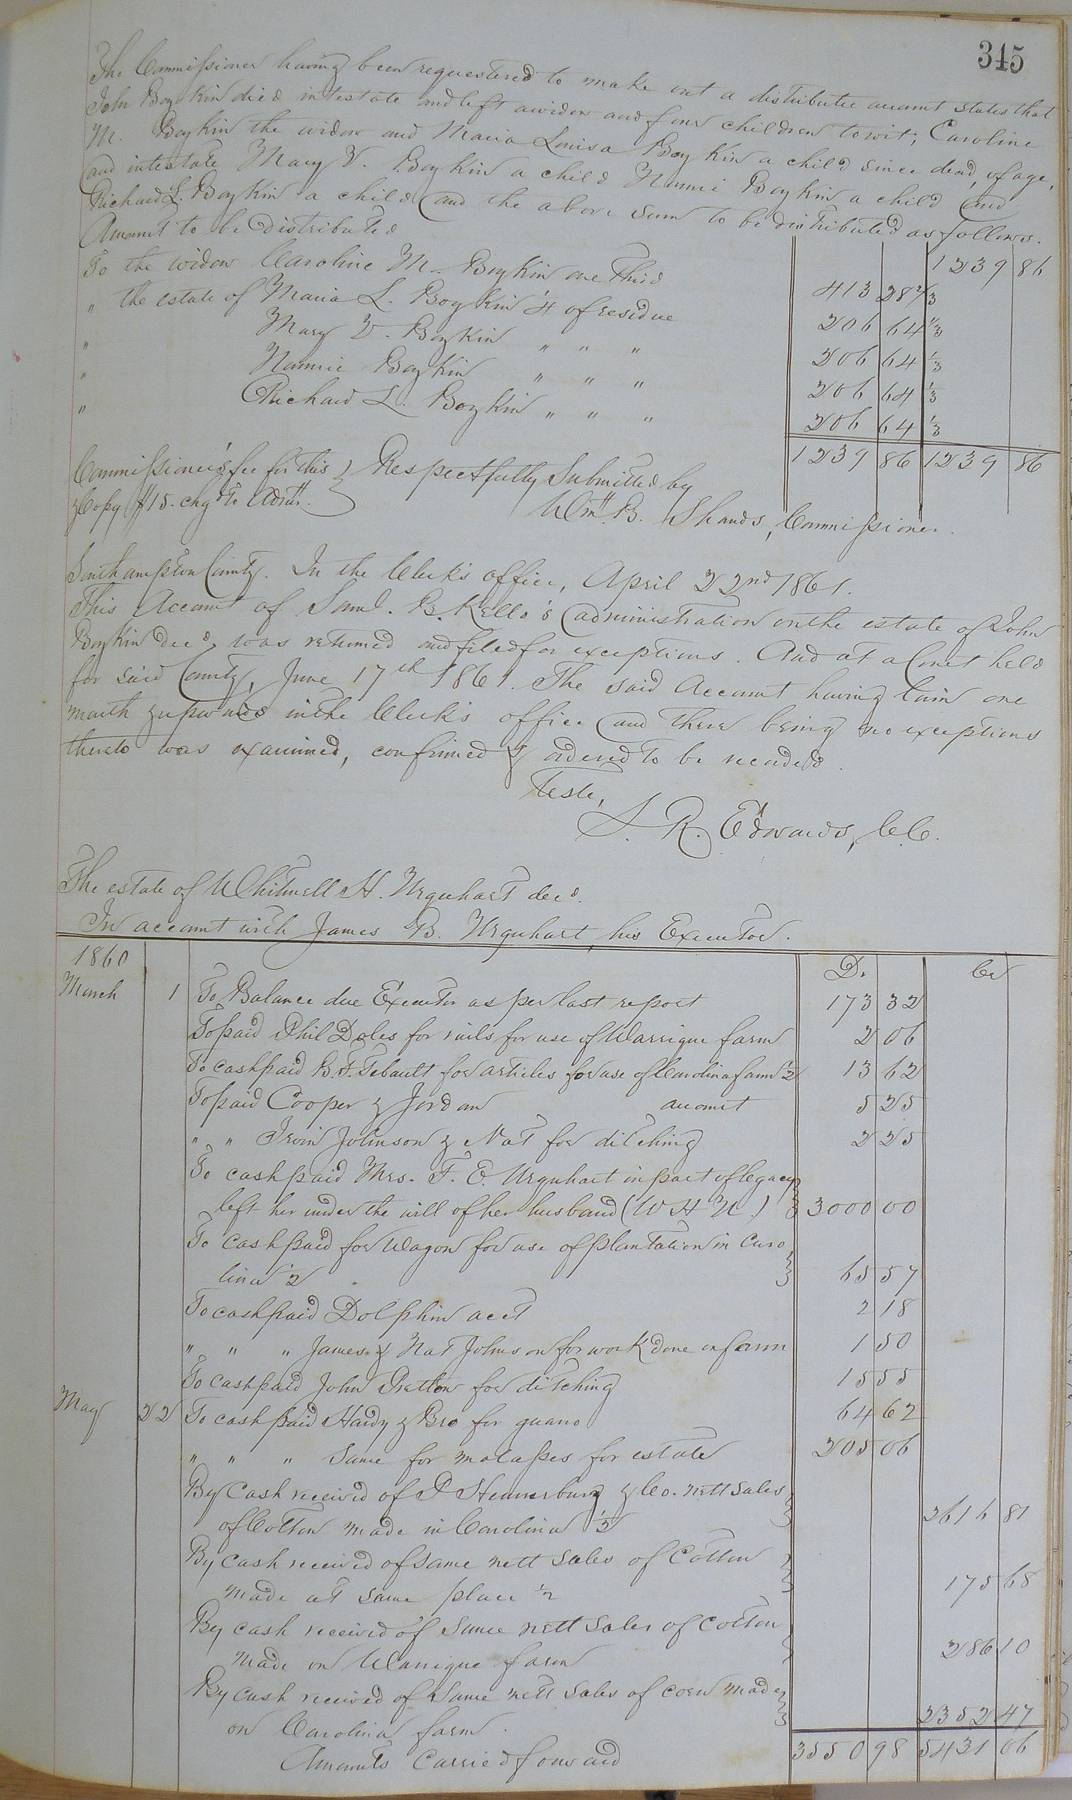 345
The Commissioner having been requestered to make out a distributee account states that
John Boykin died intestate and left a widow and four children towit; Caroline
M. Boykin the widow and Maria Louisa Boykin a child since dead, of age,
and intestate Mary V. Boykin a child Nannie Boykin a child and
Richard L. Boykin a child and the above sum to be distributed as follows.
Amount to be distributed 1239 86
To the widow Caroline M. Boykin one Third 413 28 2/3
" the estate of Maria L. Boykin 1/4 of residue 206 64 1/3
" Mary V. Boykin " " " 206 64 1/3
" Nannie Boykin " " " 206 64 1/3
" Richard L. Boykin " " " 206 64 1/3
1239 86 1239 86
Commissioner's fee for this } Respectfully Submitted by
& Copy $15. chgd to Admr. } Wm. B. Shands, Commissioner.
Southampton County. In the Clerk's office, April 22nd 1861.
This Account of Saml. B. Kello's administration on the estate of John
Boykin decd. was returned and filed for exceptions. And at a Court held
for said County, June 17th 1861. The said Account having lain one
month & upwards in the Clerk's office and there being no exceptions
thereto was examined, confirmed & ordered to be recorded.
Teste,
L. R. Edwards, C.C.
The estate of Whitmell H. Urquhart decd.
In account with James B. Urquhart, his Executor.
1860 Dr Cr
March 1 To Balance due Executor as per last report 173 32
To paid Phil Doles for rails for use of Warrique farm 2 06
To cash paid B. F. Tebault for articles for use of Carolina farm 1/2 13 62
To paid Cooper & Jordan account 5 25
" " Irvin Johnson & Nat for ditching 2 25
To cash paid Mrs. F. E. Urquhart in part of legacy }
left her under the will of her husband (W H U.) } 3000 00
To cash paid for Wagon for use of plantation in Caro }
lina 1/2 } 65 57
To cash paid Dolphin acct 2 18
" " " James & Nat Johnson for work done on farm 1 50
To cash paid John Pretlow for ditching 15 55
May 22 To cash paid Hardy & Bro for guano 64 62
" " " Same for molasses for estate 205 06
By Cash received of P Hennerburg & Co. nett sales }
of Cotton made in Carolina 1/2 } 2616 81
By cash received of same nett sales of Cotton }
made at same place 1/2 } 175 68
By cash received of same nett sales of cotton }
made on Warrique farm } 286 10
By cash received of same nett sales of corn made }
on Carolina farm. } 2352 47
Amounts carried forward 3550 98 5431 06